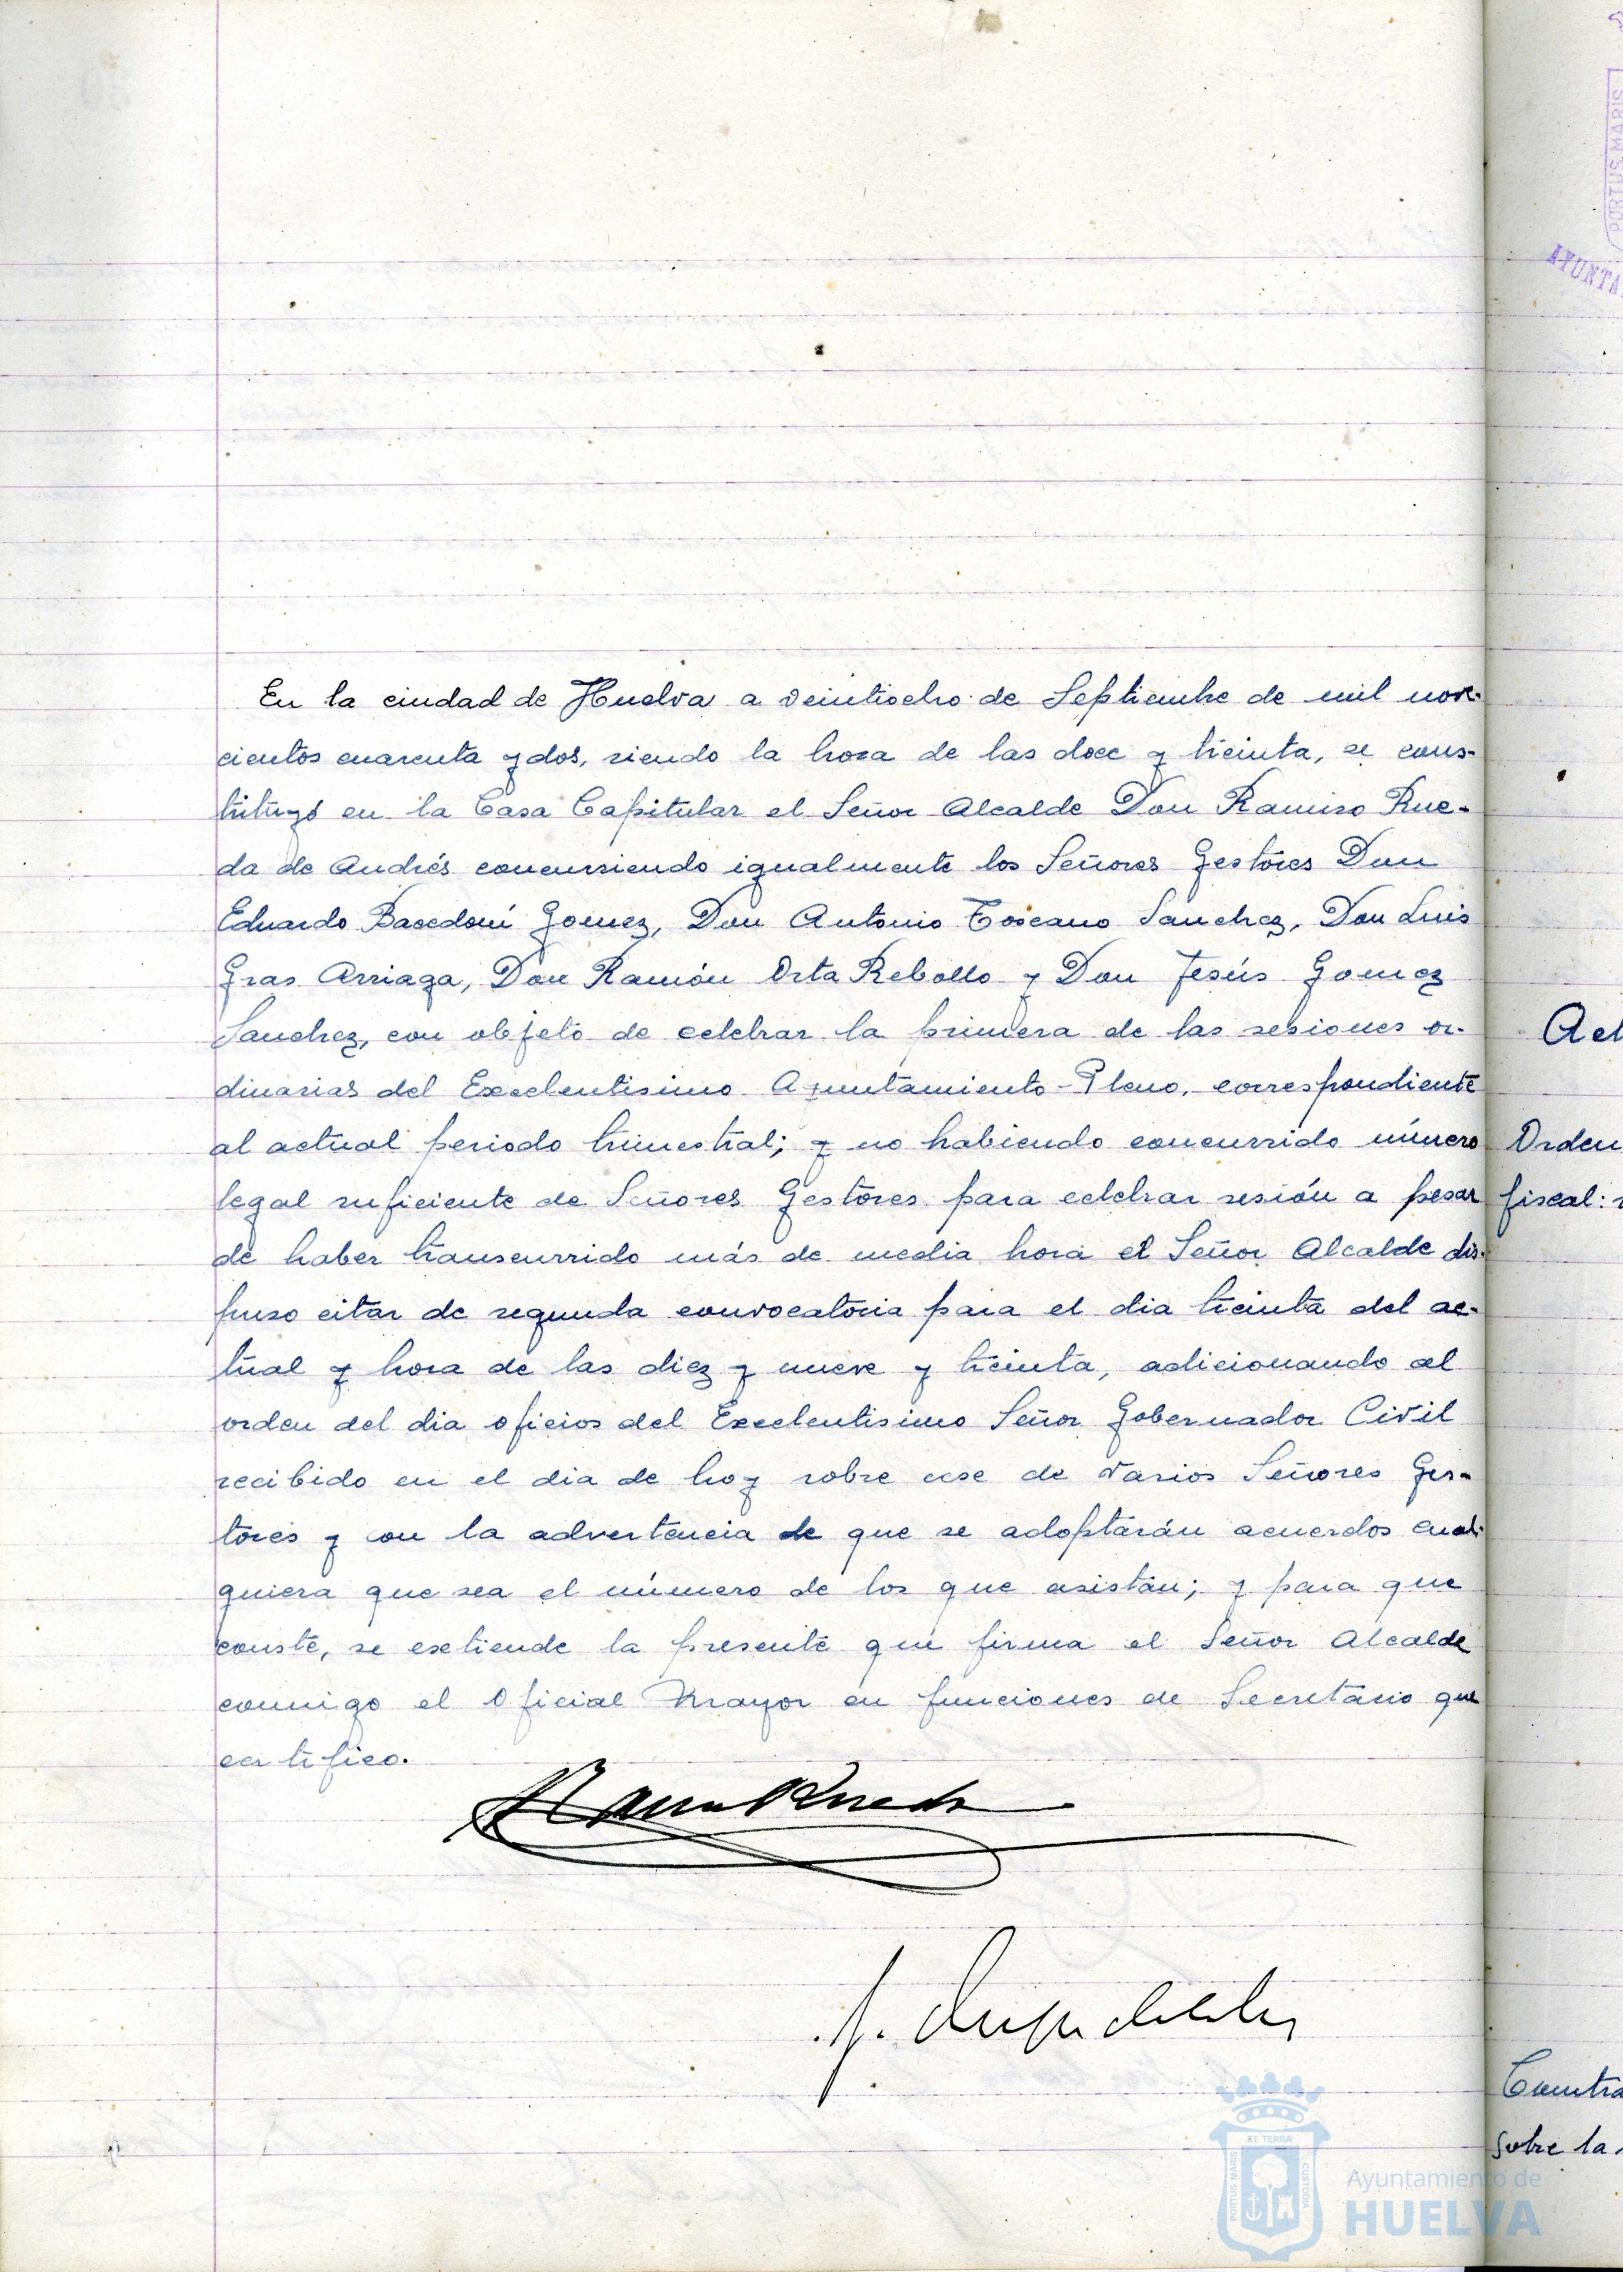 En la ciudad de Huelva a veintiocho de Septiembre de mil nove-
cientos cuarenta y dos, siendo la hora de las doce y treinta, se cons-
tituyó en la Casa Capitular el Señor Alcalde Don Ramiro Rue-
da de Andrés concurriendo igualmente los Señores Gestores Don
Eduardo Bacedoní Gomez, Don Antonio Toscano Sanchez, Don Luis
Gras Arriaga, Don Ramón Orta Rebollo y Don Jesús Gomez
Sanchez, con objeto de celebrar la primera de las sesiones or-
dinarias del Excelentisimo Ayuntamiento-Pleno, correspondiente
al actual periodo trimestral; y no habiendo concurrido número
legal suficiente de Señores Gestores para celebrar sesión a pesar
de haber transcurrido más de media hora el Señor Alcalde dis-
puso citar de segunda convocatoria para el dia treinta del ac-
tual y hora de las diez y nueve y treinta, adicionando al
orden del dia oficios del Excelentisimo Señor Gobernador Civil
recibido en el dia de hoy sobre cese de varios Señores Ges-
tores y con la advertencia de que se adoptarán acuerdos cual-
quiera que sea el número de los que asistan; y para que
conste, se extiende la presente que firma el Señor Alcalde
conmigo el Oficial Mayor en funciones de Secretario que
certifico.
Ramiro Rueda
PORTUS MARIS
AYUNTA
Act
Orden
fiscal:
Contra
sobre la
PORTUS MARIS ET TERRÆ CUSTODIA
Ayuntamiento de
HUELVA